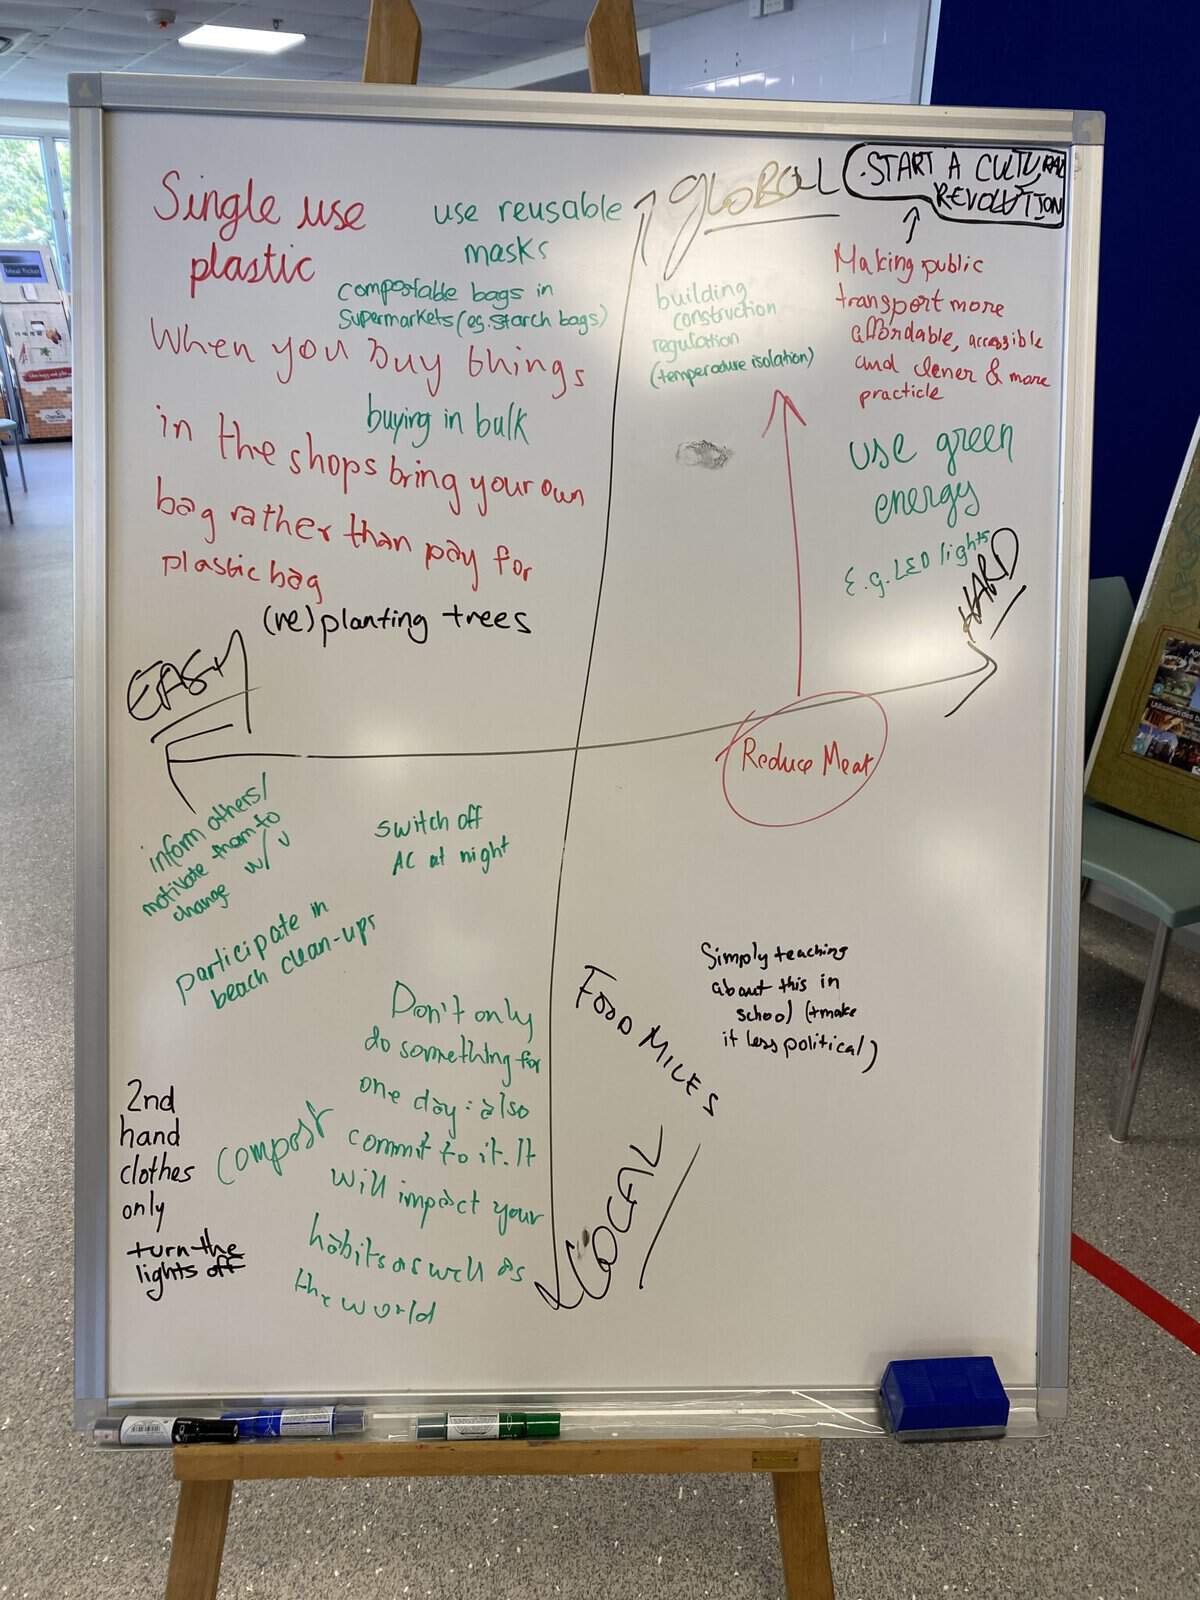 Single use
plastic
use reusable
masks
compostable bags in
supermarkets (eg. starch bags)
When you buy things
buying in bulk
in the shops bring your own
bag rather than pay for
plastic bag
(re)planting trees
GLOBAL
START A CULTURAL
REVOLUTION
building
construction
regulation
(temperature isolation)
Making public
transport more
affordable, accessible
and clener & more
practicle
use green
energy
E.g. LED lights
HARD
EASY
Reduce Meat
inform others/
motivate them to
change w/ u
switch off
AC at night
participate in
beach clean-ups
Don't only
do something for
one day: also
commit to it. It
will impact your
habits as well as
the world
compost
2nd
hand
clothes
only
turn the
lights off
FOOD MILES
LOCAL
Simply teaching
about this in
school (+make
it less political)